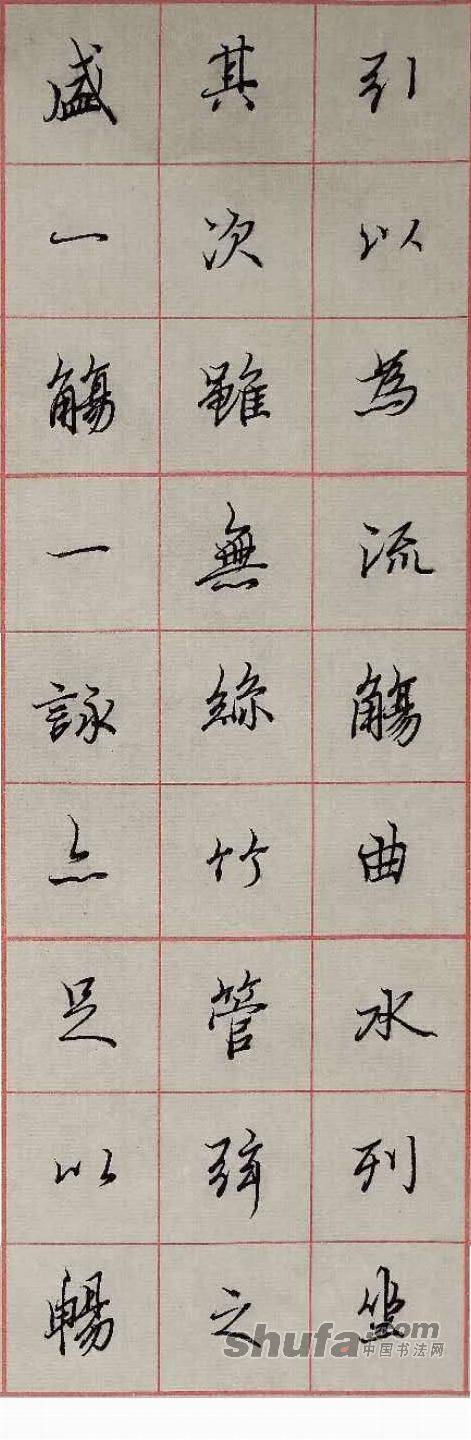 引以為流觴曲水列坐
其次雖無絲竹管弦之
盛一觴一詠亦足以暢
shufa.com
中国书法网